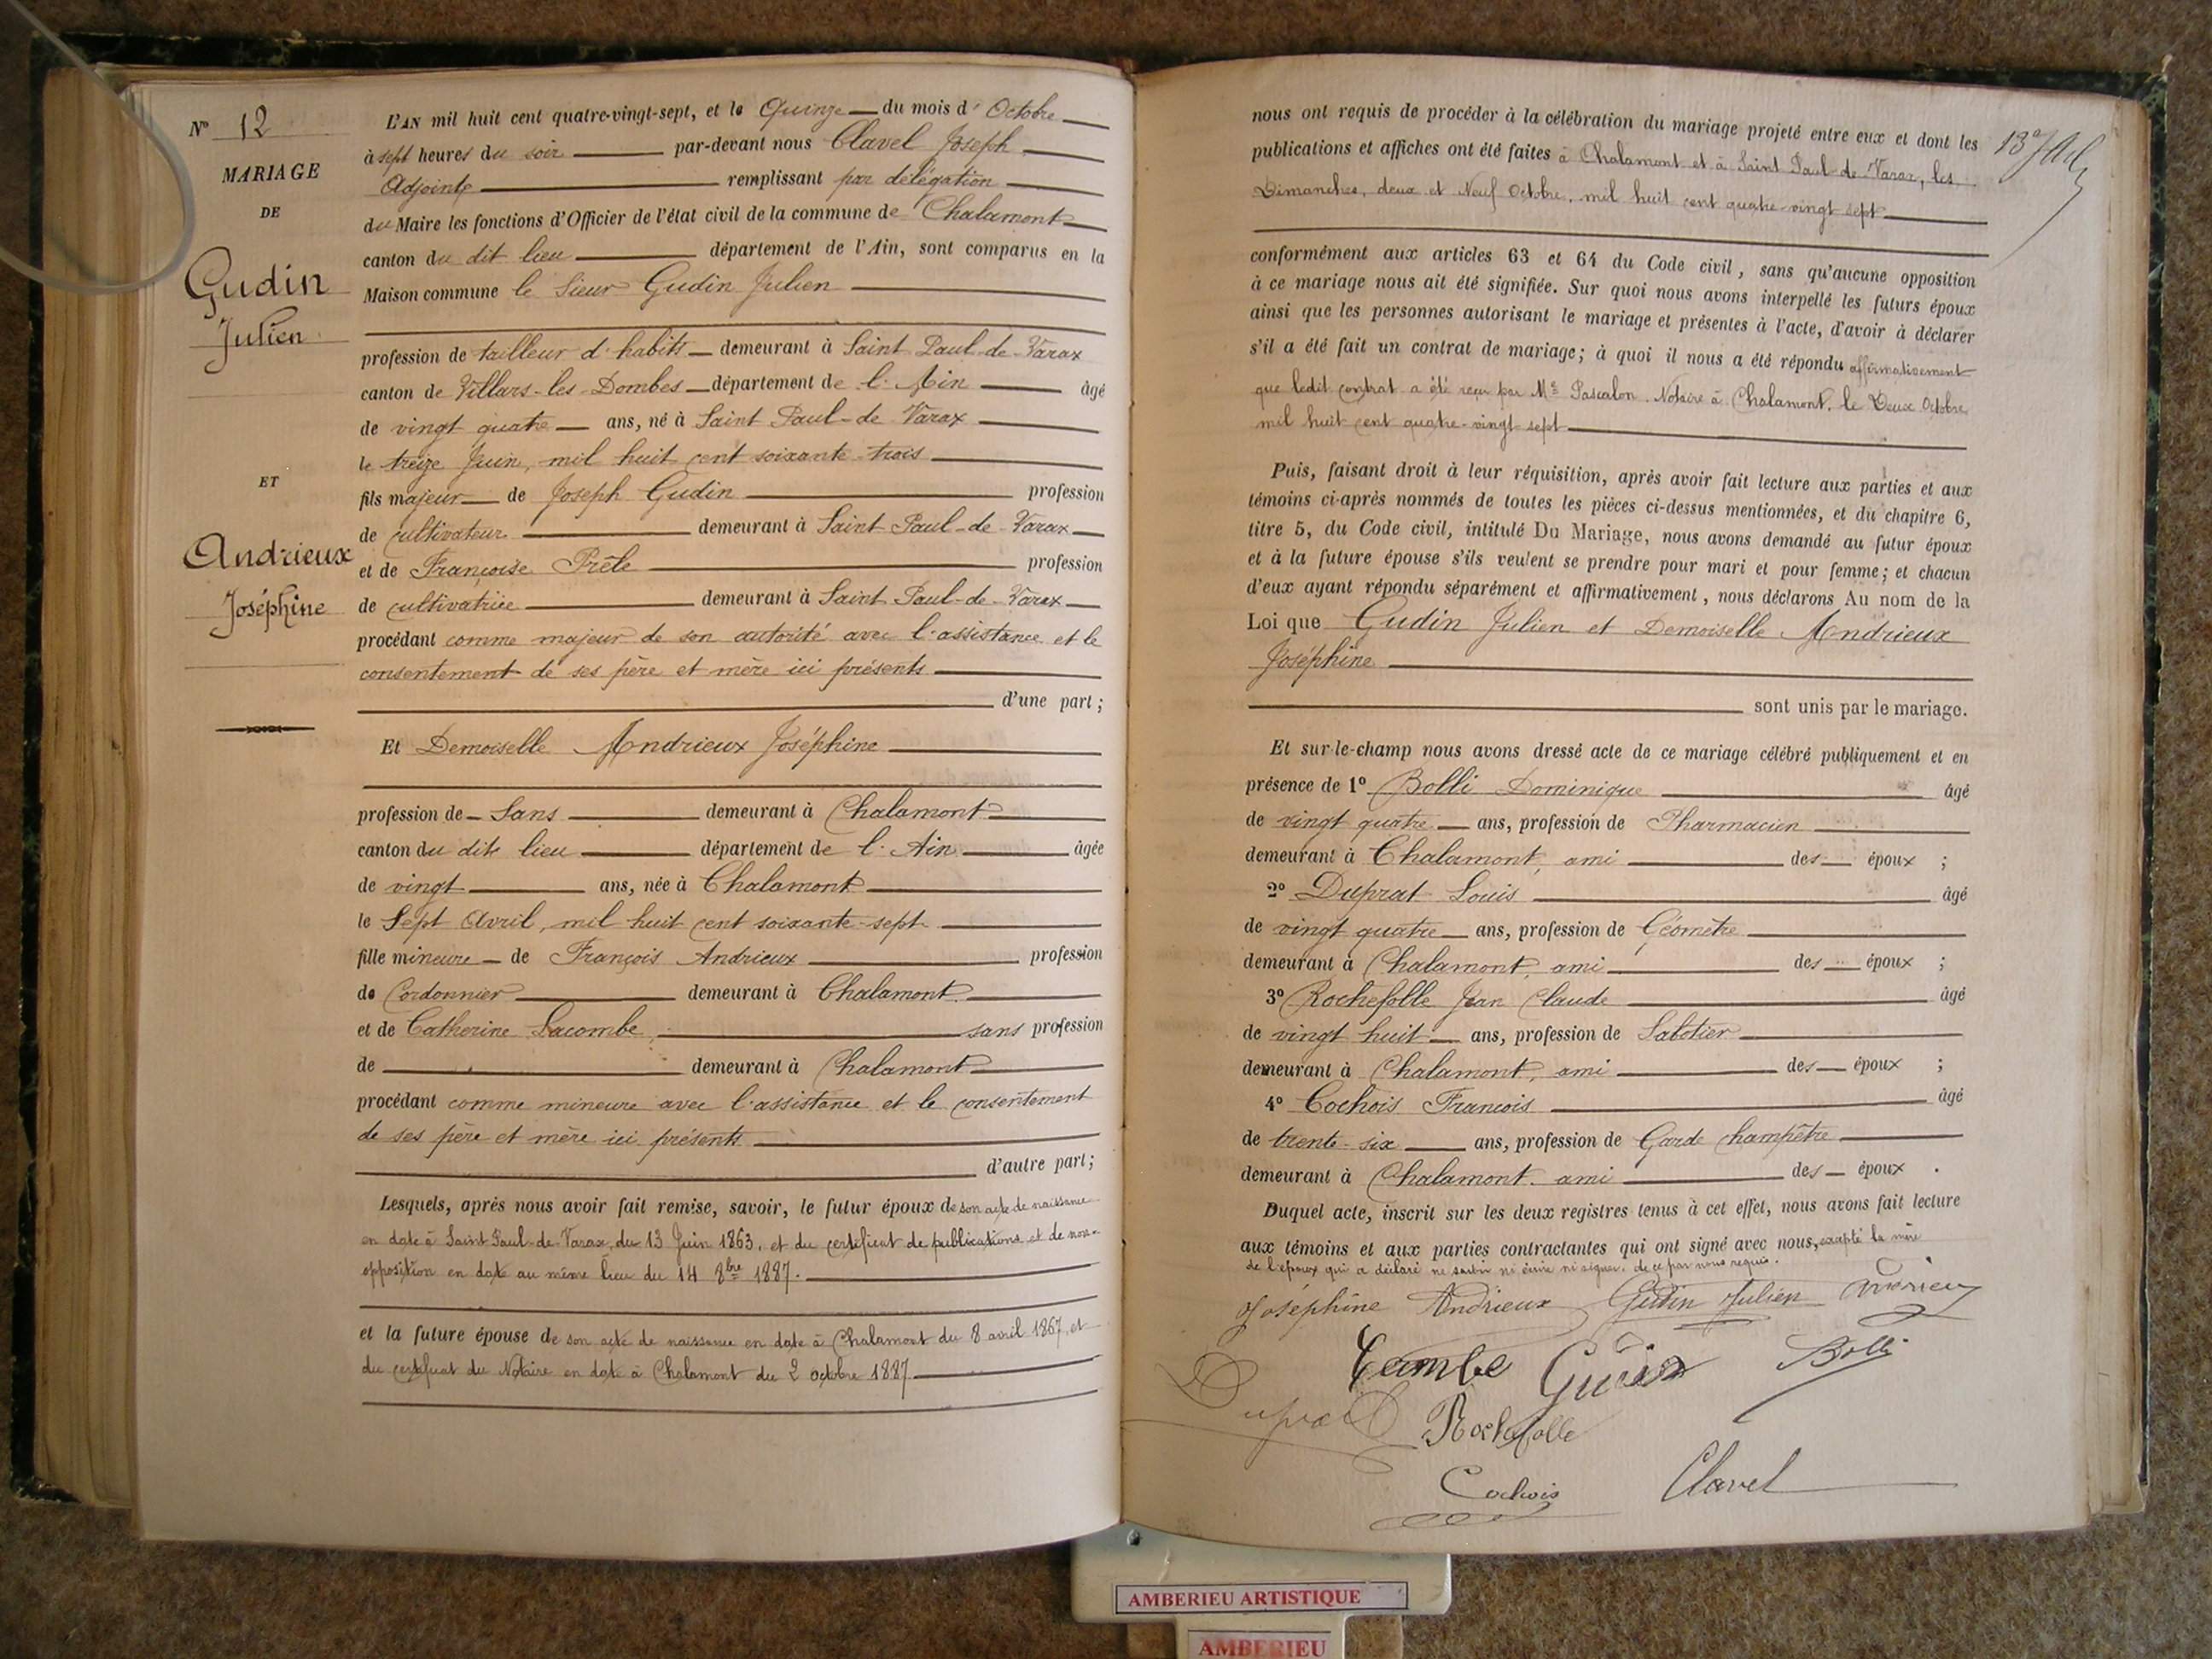 N° 12
MARIAGE
DE
Gudin
Julien
ET
Andrieux
Joséphine
L'AN mil huit cent quatre-vingt-sept, et le Quinze du mois d' Octobre
à sept heures du soir par-devant nous Clavel Joseph
Adjoint remplissant par délégation
du Maire les fonctions d'Officier de l'état civil de la commune de Chalamont
canton du dit lieu département de l'Ain, sont comparus en la
Maison commune le Sieur Gudin Julien
profession de tailleur d'habits demeurant à Saint Paul-de-Varax
canton de Villars-les-Dombes département de l'Ain âgé
de vingt quatre ans, né à Saint Paul-de Varax
le treize Juin, mil huit cent soixante-trois
fils majeur de Joseph Gudin profession
de cultivateur demeurant à Saint-Paul-de-Varax
et de Françoise Prêle profession
de cultivatrice demeurant à Saint-Paul-de-Varax
procédant comme majeur de son autorité avec l'assistance et le
consentement de ses père et mère ici présents
d'une part;
Et Demoiselle Andrieux Joséphine
profession de Sans demeurant à Chalamont
canton du dit lieu département de l'Ain âgée
de vingt ans, née à Chalamont
le Sept Avril, mil huit cent soixante-sept
fille mineure de François Andrieux profession
de Cordonnier demeurant à Chalamont
et de Catherine Lacombe, sans profession
de demeurant à Chalamont
procédant comme mineure avec l'assistance et le consentement
de ses père et mère ici présents
d'autre part;
Lesquels, après nous avoir fait remise, savoir, le futur époux de son acte de naissance
en date à Saint Paul-de-Varax, du 13 Juin 1863, et du certificat de publications et de non-
opposition en date au même lieu du 14 8bre 1887.
et la future épouse de son acte de naissance en date à Chalamont du 8 avril 1867, et
du certificat du Notaire en date à Chalamont du 2 octobre 1887
nous ont requis de procéder à la célébration du mariage projeté entre eux et dont les
publications et affiches ont été faites à Chalamont et à Saint Paul-de-Varax, les
Dimanches, deux et Neuf Octobre, mil huit cent quatre-vingt sept
conformément aux articles 63 et 64 du Code civil, sans qu'aucune opposition
à ce mariage nous ait été signifiée. Sur quoi nous avons interpellé les futurs époux
ainsi que les personnes autorisant le mariage et présentes à l'acte, d'avoir à déclarer
s'il a été fait un contrat de mariage; à quoi il nous a été répondu affirmativement
que ledit contrat a été reçu par Me Pascalon, Notaire à Chalamont, le Deux Octobre
mil huit cent quatre-vingt-sept
Puis, faisant droit à leur réquisition, après avoir fait lecture aux parties et aux
témoins ci-après nommés de toutes les pièces ci-dessus mentionnées, et du chapitre 6,
titre 5, du Code civil, intitulé Du Mariage, nous avons demandé au futur époux
et à la future épouse s'ils veulent se prendre pour mari et pour femme; et chacun
d'eux ayant répondu séparément et affirmativement, nous déclarons Au nom de la
Loi que Gudin Julien et Demoiselle Andrieux
Joséphine
sont unis par le mariage.
Et sur-le-champ nous avons dressé acte de ce mariage célébré publiquement et en
présence de 1° Bolli Dominique âgé
de vingt quatre ans, profession de Pharmacien
demeurant à Chalamont, ami des époux ;
2° Duprat Louis âgé
de vingt quatre ans, profession de Géomètre
demeurant à Chalamont, ami des époux ;
3° Rochefolle Jean Claude âgé
de vingt huit ans, profession de Sabotier
demeurant à Chalamont, ami des époux ;
4° Cochois François âgé
de trente-six ans, profession de Garde champêtre
demeurant à Chalamont, ami des époux .
Duquel acte, inscrit sur les deux registres tenus à cet effet, nous avons fait lecture
aux témoins et aux parties contractantes qui ont signé avec nous, excepté la mère
de l'époux qui a déclaré ne savoir ni écrire ni signer, de ce par nous requis.
Joséphine Andrieux Gudin Julien Andrieux
Gudin Bolli
Duprat Rochefolle
Cochois Clavel
AMBERIEU ARTISTIQUE
AMBERIEU